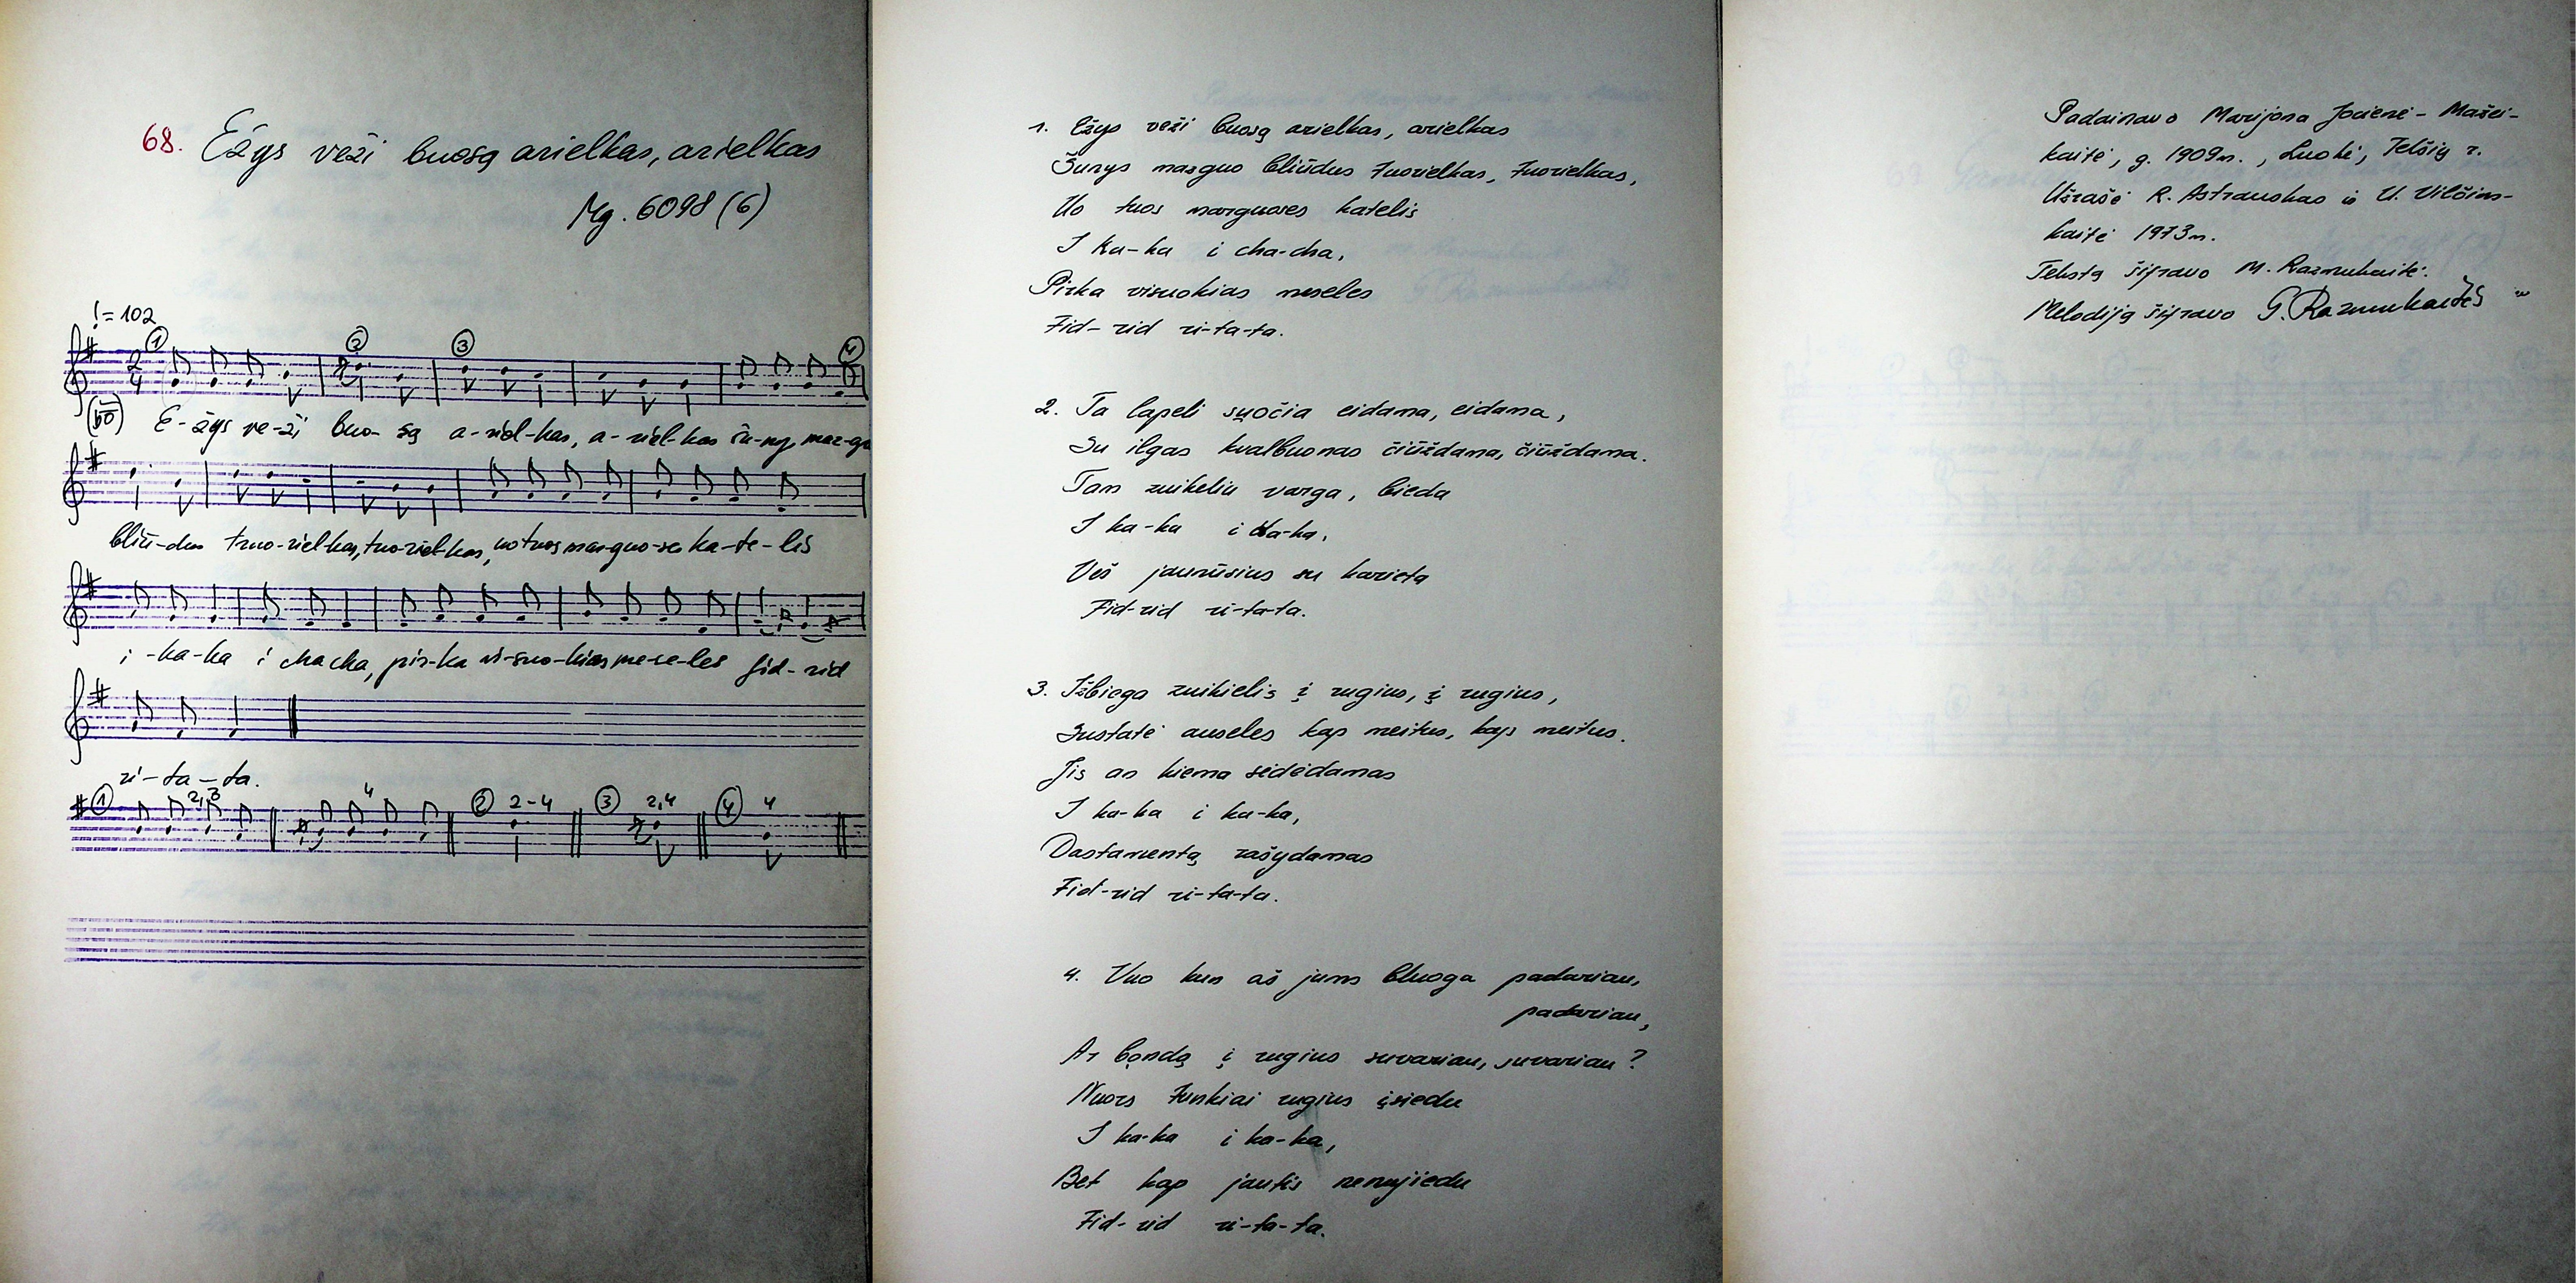 68. Ežys veži buosą arielkas, arielkas
Mg. 6098 (6)
♩ = 102
E-žys ve-ži buo-są a-riel-kas, a-riel-kas šu-nys maz-guo
bliū-dus tuo-riel-kas, tuo-riel-kas, uo tuos mar-guo-ses ka-te-lis
i -ka-ka i cha cha, pir-ka vi-suo-kias me-se-les fid-rid
ri-ta-ta.
① 2,3 4 ② 2-4 ③ 2,4 ④ 4
1. Ežys veži buosą arielkas, arielkas
Šunys mazguo bliūdus tuorielkas, tuorielkas,
Uo tuos marguoses katelis
I ka-ka i cha-cha,
Pirka visuokias meseles
Fid-rid ri-ta-ta.
2. Ta lapeli suočia eidama, eidama,
Su ilgas kvalbuonas čiūždama, čiūždama.
Tam zuikeliu varga, bieda
I ka-ka i ka-ka,
Veš jaunūsius su karieta
Fid-rid ri-ta-ta.
3. Išbiega zuikielis į rugius, į rugius,
Sustatė auseles kap meitus, kap meitus.
Jis an kiema sėdėdamas
I ka-ka i ka-ka,
Dastamentą rašydamas
Fid-rid ri-ta-ta.
4. Vuo kun aš jums bluoga padariau,
padariau,
Ar bandą į rugius suvariau, suvariau?
Nuors tunkiai rugius įsiedu
I ka-ka i ka-ka,
Bet kap jautis nenujiedu
Fid-rid ri-ta-ta.
Padainavo Marijona Jocienė-Mažei-
kaitė, g. 1909 m., Luokė, Telšių r.
Užrašė R. Astrauskas ir U. Vilčins-
kaitė 1973 m.
Tekstą šifravo M. Razmukaitė.
Melodiją šifravo G. Razmukaitės